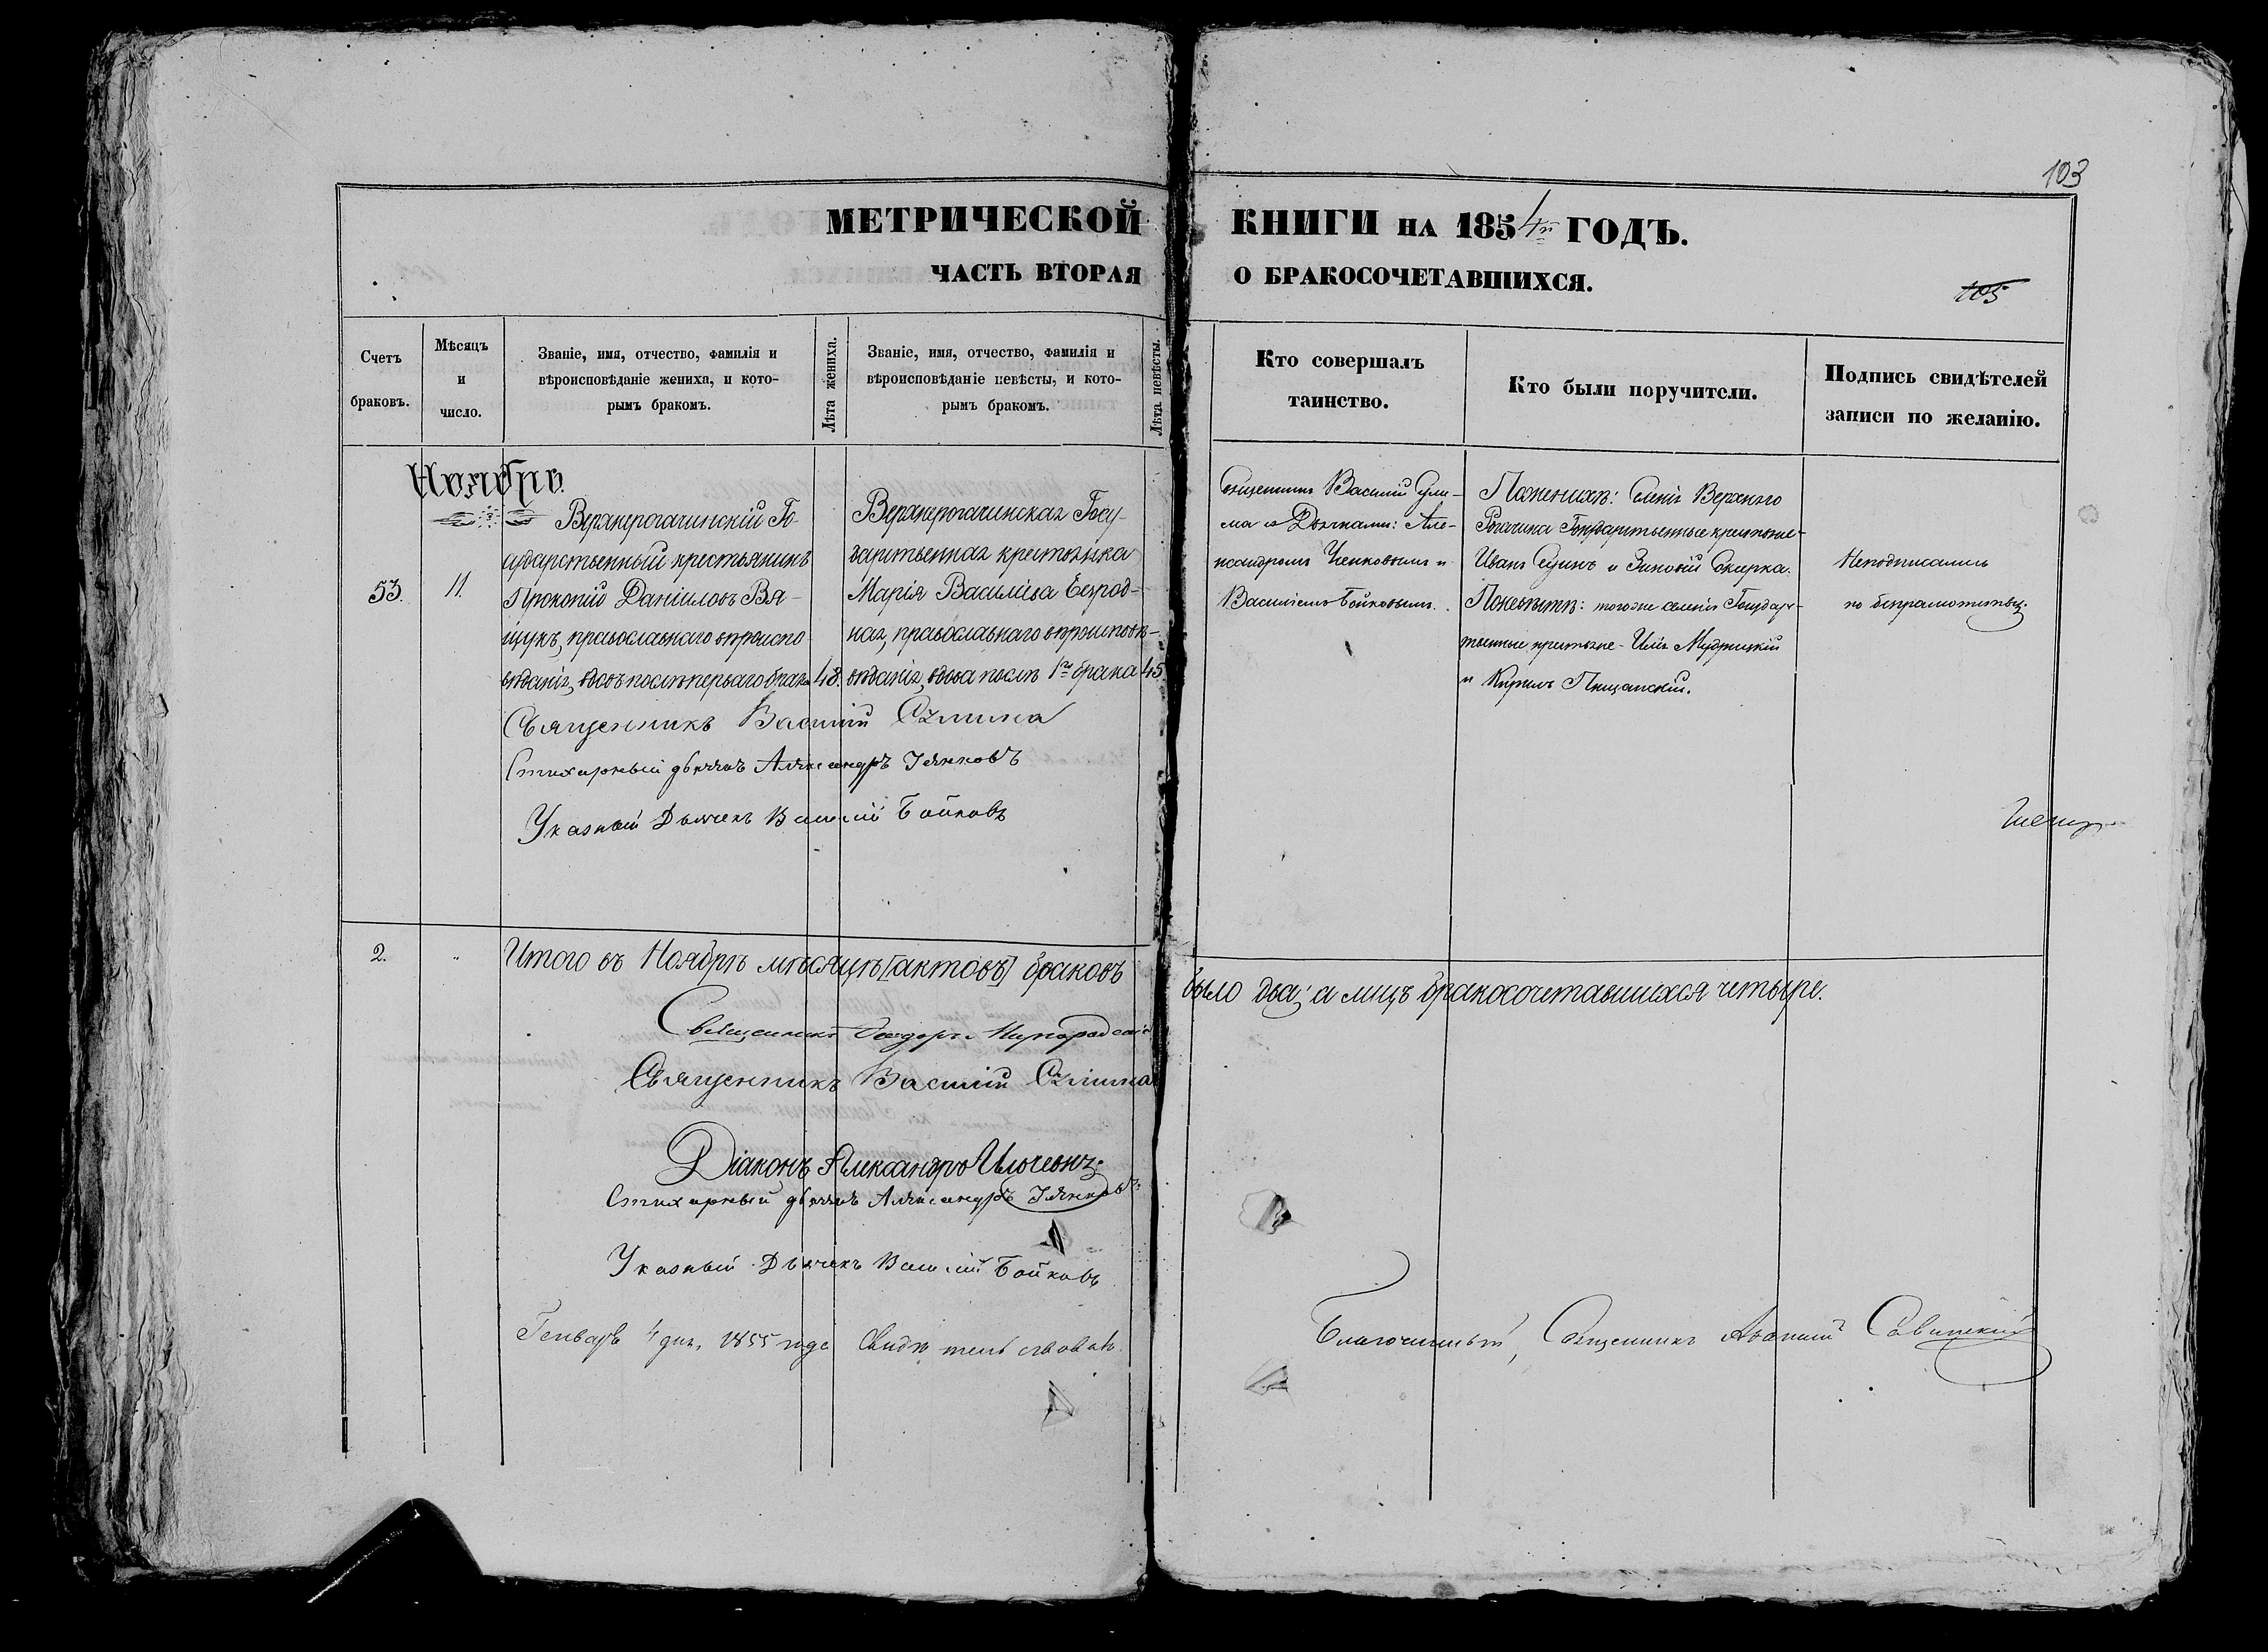 103
МЕТРИЧЕСКОЙ КНИГИ НА 1854й ГОДЪ.
ЧАСТЬ ВТОРАЯ О БРАКОСОЧЕТАВШИХСЯ.
105
Счетъ
браковъ.
Мѣсяцъ
и
число.
Званіе, имя, отчество, фамилія и
вѣроисповѣданіе жениха, и кото-
рымъ бракомъ.
Лѣта жениха.
Званіе, имя, отчество, фамилія и
вѣроисповѣданіе невѣсты, и кото-
рымъ бракомъ.
Лѣта невѣсты.
Кто совершалъ
таинство.
Кто были поручители.
Подпись свидѣтелей
записи по желанію.
Ноябрь.
53.
11.
Верхнерогачинскій Го-
сударственный крестьянинъ
Прокопій Даніиловъ Вя-
щукъ, православнаго вѣроиспо-
вѣданія, вдовъ послѣ перваго брака
48.
Верхнерогачинская Госу-
дарственная крестьянка
Марія Васильева Безрод-
ная, православнаго вѣроисповѣ-
веданія, вдова послѣ 1го брака
45.
Священникъ Василій Сули-
ма съ Дьячками: Але-
ксандромъ Ченковымъ и
Василіемъ Бойковымъ.
По женихѣ: Селенія Верхняго
Рогачика Государственные крестьяне-
Иванъ Сѹинъ и Зиновій Скирка.
По невѣстѣ: тогоже селенія Государ-
ственные крестьяне - Илія Мудрицкій
и Кирилъ Пищанскій.
Неподписались
по безграмотству.
Священникъ Василій Сулима
Стихарный дьячокъ Александръ Ченковъ
Указный Дьячекъ Василій Бойковъ
2.
Итого въ Ноябрѣ мѣсяцѣ [актовъ] браковъ было два; а лицъ бракосочетавшихся четыре.
Священникъ Ѳеодоръ Миргородскій
Священникъ Василій Сулима
Діаконъ Александръ
Стихарный дьячокъ Александръ Ченковъ
Указный Дьячекъ Василій Бойковъ
Генваря 4 дня, 1855 года Свидѣтельствовалъ
Благочинный, Священникъ Савицкій